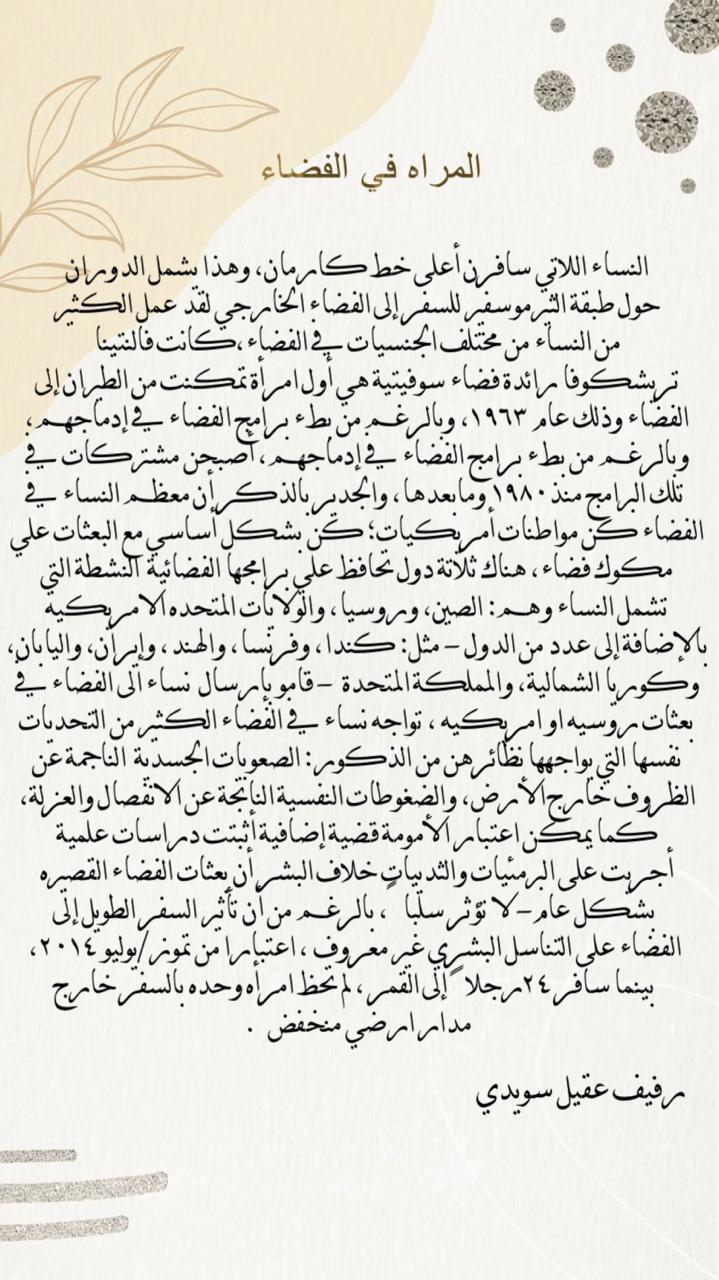 المراه في الفضاء
النساء اللاتي سافرن أعلى خط كارمان، وهذا يشمل الدوران
حول طبقة الثيرموسفير للسفر إلى الفضاء الخارجي لقد عمل الكثير
من النساء من مختلف الجنسيات في الفضاء ،كانت فالنتينا
تريشكوفا رائدة فضاء سوفيتية هي أول امرأة تمكنت من الطيران إلى
الفضاء وذلك عام ١٩٦٣، وبالرغم من بطء برامج الفضاء في إدماجهم،
وبالرغم من بطء برامج الفضاء في إدماجهم، أصبحن مشتركات في
تلك البرامج منذ ١٩٨٠ وما بعدها، والجدير بالذكر أن معظم النساء في
الفضاء كن مواطنات أمريكيات؛ كن بشكل أساسي مع البعثات علي
مكوك فضاء، هناك ثلاثة دول تحافظ علي برامجها الفضائية النشطة التي
تشمل النساء وهم: الصين، وروسيا، والولايات المتحده الامريكيه
بالإضافة إلى عدد من الدول – مثل: كندا، وفرنسا، والهند، وإيران، واليابان،
وكوريا الشمالية، والمملكة المتحدة –قامو بإرسال نساء الى الفضاء في
بعثات روسيه او امريكيه ، تواجه نساء في الفضاء الكثير من التحديات
نفسها التي يواجهها نظائرهن من الذكور: الصعوبات الجسدية الناجمة عن
الظروف خارج الأرض، والضغوطات النفسية الناتجة عن الانفصال والعزلة،
كما يمكن اعتبار الأمومة قضية إضافية أثبتت دراسات علمية
أجريت على البرمئيات والثدييات خلاف البشر أن بعثات الفضاء القصيره
بشكل عام–لا تؤثر سلبا ، بالرغم من أن تأثير السفر الطويل إلى
الفضاء على التناسل البشري غير معروف ، اعتبارا من تموز/يوليو ٢٠١٤،
بينما سافر ٢٤رجلا ً إلى القمر، لم تحظ امرأه وحده بالسفر خارج
مدار ارضي منخفض .
رفيف عقيل سويدي